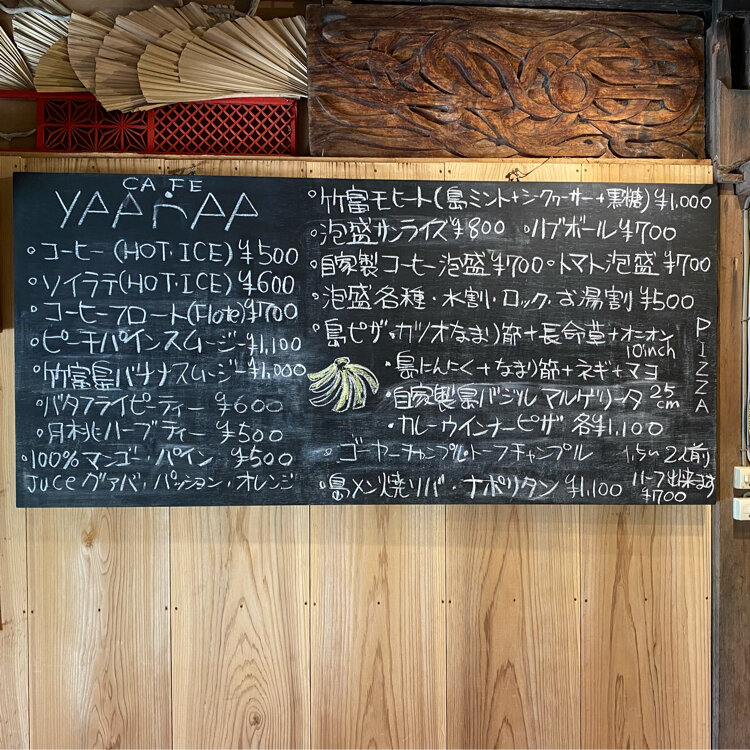 CAFE
YAPNAP
・コーヒー(HOT・ICE)¥500
・ソイラテ(HOT・ICE)¥600
・コーヒーフロート(Flote)¥700
・ピーチパインスムージー¥1,100
・竹富島バナナスムージー¥1,000
・バタフライピーティー ¥600
・月桃ハーブティー ¥500
・100%マンゴー・パイン ¥500
Juce グァバ・パッション・オレンジ
・竹富モヒート(島ミント+シークヮーサー+黒糖)¥1,000
・泡盛サンライズ¥800 ・ハブボール¥700
・自家製コーヒー泡盛¥700・トマト泡盛¥700
・泡盛各種・水割・ロック・お湯割¥500
・島ピザ・カツオなまり節+長命草+オニオン
10inch
・島にんにく+なまり節+ネギ+マヨ
・自家製島バジル マルゲリータ 25cm
・カレーウインナーピザ 各¥1,100
PIZZA
・ゴーヤーチャンプル・トーフチャンプル 1,5〜2人前
・島メン焼ソバ・ナポリタン ¥1,100 ハーフ出来ます
¥700